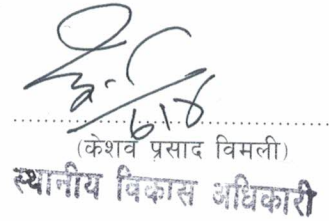 (केशव प्रसाद विमली)
स्थानीय विकास अधिकारी